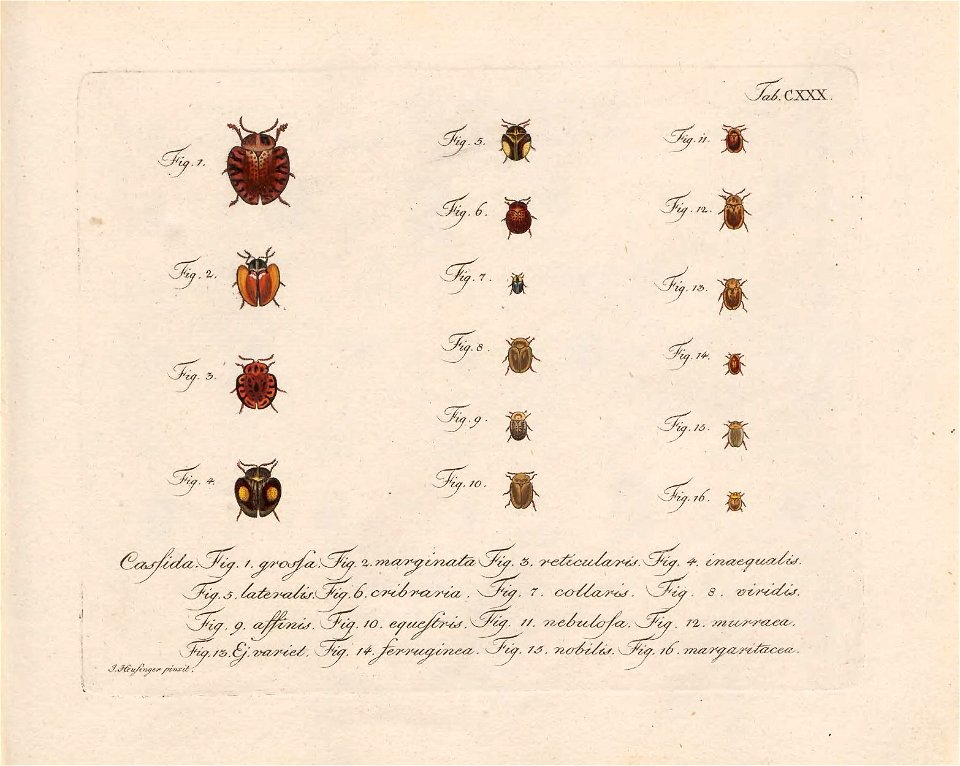 Tab. CXXX.
Fig. 1.
Fig. 2.
Fig. 3.
Fig. 4.
Fig. 5.
Fig. 6.
Fig. 7.
Fig. 8.
Fig. 9.
Fig. 10.
Fig. 11.
Fig. 12.
Fig. 13.
Fig. 14.
Fig. 15.
Fig. 16.
Caſsida. Fig. 1. groſsa. Fig. 2. marginata Fig. 3. reticularis. Fig. 4. inaequalis.
Fig. 5. lateralis. Fig. 6. cribraria. Fig. 7. collaris. Fig. 8. viridis.
Fig. 9. affinis. Fig. 10. equeſtris. Fig. 11. nebuloſa. Fig. 12. murraea.
Fig. 13. Ej. variet. Fig. 14. ferruginea. Fig. 15. nobilis. Fig. 16. margaritacea.
J. Heuſinger pinxit.